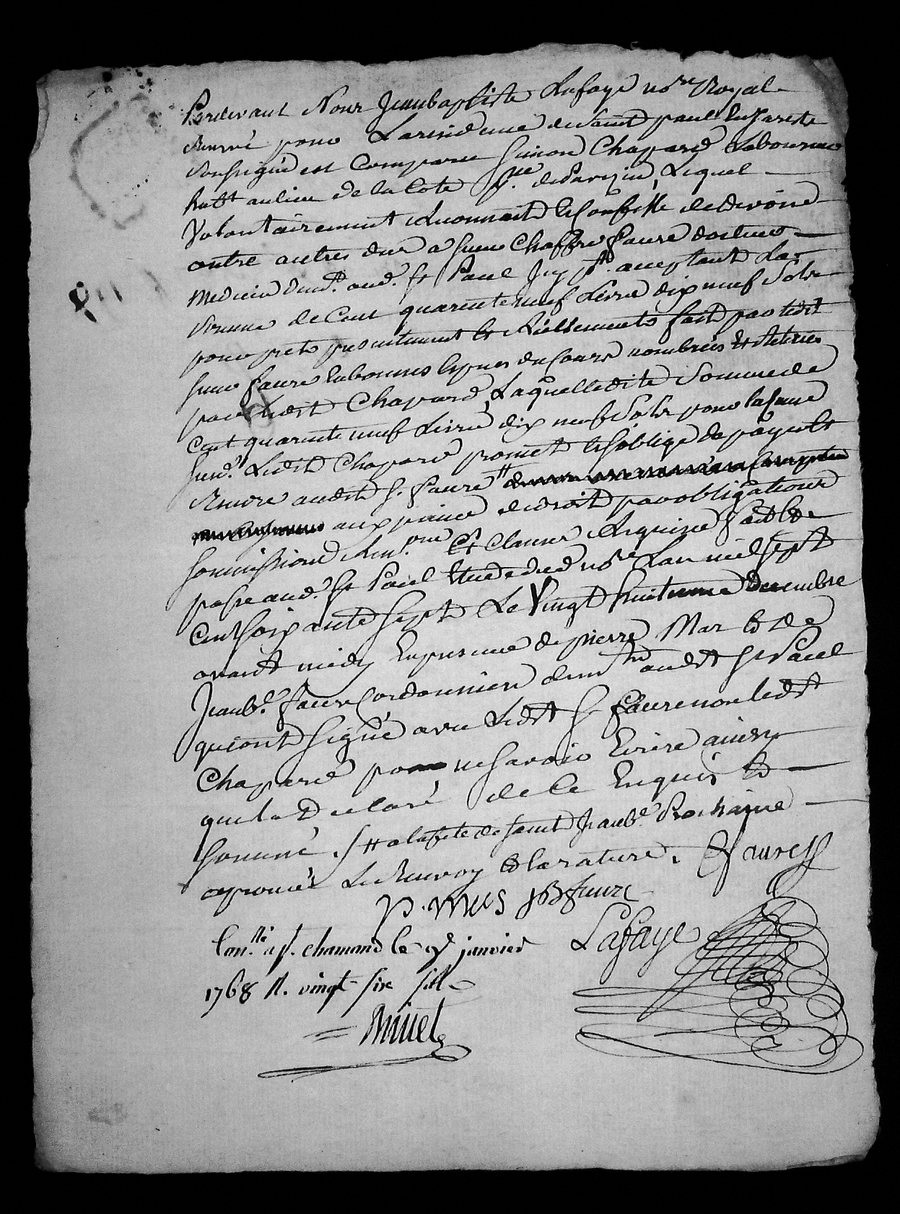 Pardevant Nous Jeanbaptiste Lafaye no.re Royal
Reservé pour La residence de Saint paul En Jarests
Soussigné est Comparu Simon Chapard Laboureur
habt. au lieu de la Cote p.sse de Lequel
Volontairement Reconnait Et Confesse de devoir
outre autres dux a sieur Chaffre faure docteur
Medecin demt. aud. St. Paul Icy pt. acceptant La
Somme de Cent quarente neuf Livre dix neuf Sols
pour prets presentement Et Réellements fait par ledit
sieur faure En bonnes Espèces du Cours nombrées Et Retirées
par Ledit Chapard, Laquelle dite Somme de
Cent quarente neuf Livre dix neuf Sols pour la Cause
Susd. Ledit Chapard promet Et S'oblige de payer Et
Rendre audit Sr. faure #
aux peines de droit par obligations
Soummissions Ren.ons Et Clauses Requises fait Et
passé aud. St. Paul Etude dud. no.re L'an mil sept
Cent Soixante Sept Le Vingt huitieme decembre
avant midy En presence de pierre Mas Et de
Jeanb.te faure Cordonnier demts. audit St. Paul
qui ont Signé avec Ledit Sr. faure non Ledit
Chapard pour ne Savoir Ecrire ainsy
qu'il a Declaré de Ce Enquis Et
Sommé. # a la fete de Saint Jeanb.te Prochaine
aprouvés Le Renvoy Et la rature. Faure
P. mas JB faure
Con.llé a St. chamond le janvier Lafaye
1768 R. vingt six sols